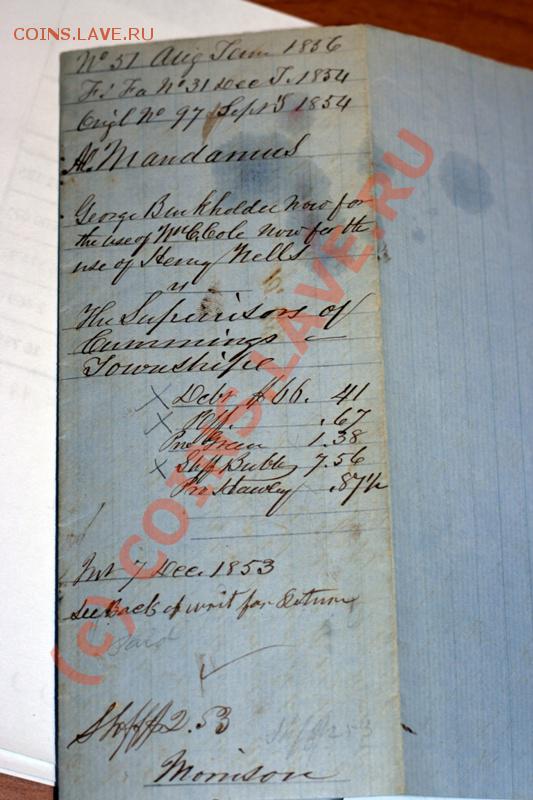 COINS.LAVE.РУ
COINS.LAVE.RU
No 51 Aug Term 1856
Fi Fa No 31 Dec T. 1854
Origl No 97 Sept T 1854
Al. Mandamus
George Burkholder now for
the use of Wm C. Cole now for the
use of Henry Wells
vs
The Supervisors of
Cummings
Townshipe
Debt $66. 41
.67
Pro Green 1.38
Shff Bubb 7.56
Pro Hawley .87½
Int 7 Dec. 1853
See Back of writ for Return
Paid
Shff $2.53
Shff 2.53
Morrison
(c) COINS.LAVE.RU